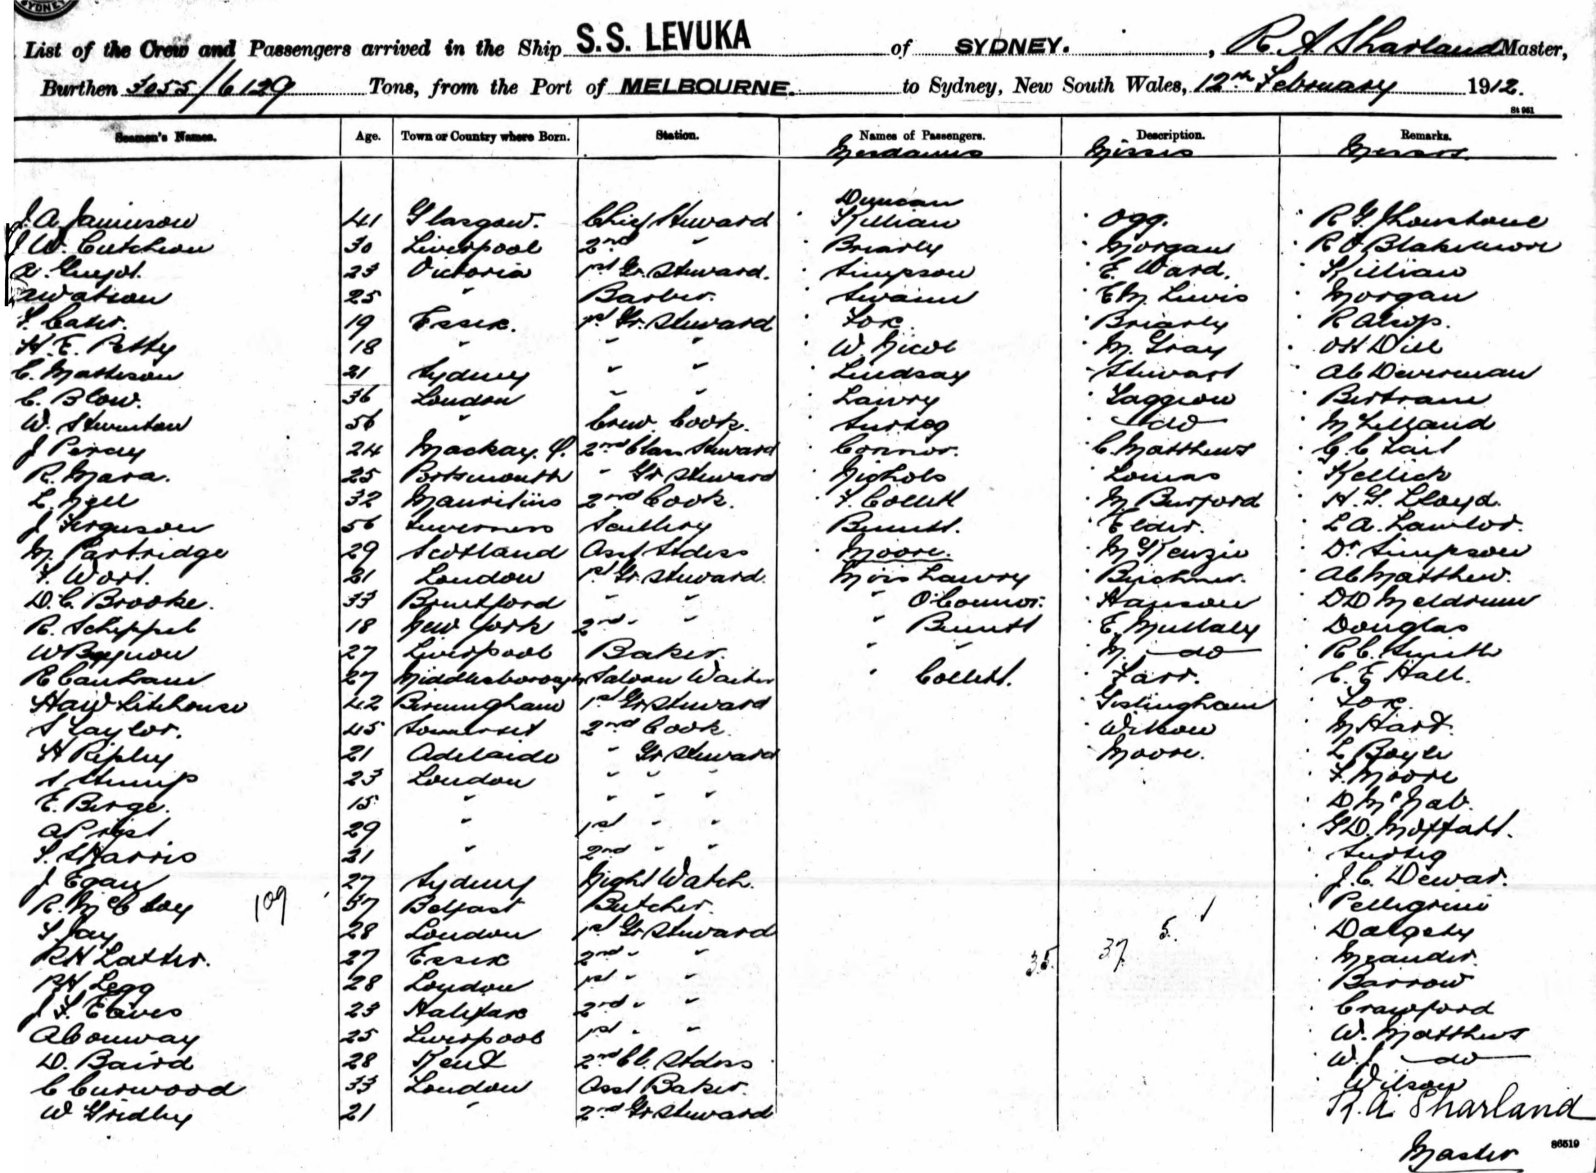 SYDNEY
List of the Crew and Passengers arrived in the Ship S.S. LEVUKA of SYDNEY. , R. A Sharland Master,
Burthen 3055/6129 Tons, from the Port of MELBOURNE. to Sydney, New South Wales, 12th February 1912.
84 951
Seamen's Names. Age. Town or Country where Born. Station. Names of Passengers. Description. Remarks.
Mesdames Misses Messrs.
Duncan
J. A. Jamieson 41 Glasgow. Chief Steward Killian Ogg.
J W. Cutcheon 30 Liverpool 2nd " Briarly Morgan R O Blakemore
A. Guyot. 23 Victoria 1st Gr. Steward. Simpson E. Ward. Killian
Watson 25 " Barber. Swann E M Lewis Morgan
F. Cater. 19 Essex. 1st Gr. Steward Fox. Briarly R Alsop.
H. E. Petty 18 " " " W. Nicol M. Gray O H Dill
C. Matheson 21 Sydney " " Lindsay Stewart
C. Blow. 36 London " " Lawry Laggrow Bertram
W. Staunton 56 " Crew Cook. do
J Percy 24 Mackay. Q. 2nd Class Steward Connor. C. Matthews C. C. Tait
R. Mara. 25 Portsmouth " Gr Steward Nichols Lomas Kellick
L. Nell 32 Mauritius 2nd Cook. F. Collett M Burford H. G. Lloyd.
J Ferguson 56 Inverness Scullery Bunett. Elder. L. A. Lawlor.
M. Partridge 29 Scotland Asst Stdess Moore. McKenzie Dr Simpson
F. Wort. 21 London 1st Gr. Steward. Miss Lawry Buchner. A C Matthew.
D. C. Brooke. 33 Brentford " " " O'Connor. Hanson D D Meldrum
R. Scheppel 18 New York 2nd " " " Bunett E. Mullaly Douglas
W Baynon 27 Liverpool Baker. " M. do R C. Smith
R Canham 27 Middlesborough Saloon Waiter " Collett. Farr. C. E Hall.
Haw Litchouse 42 Birmingham 1st Gr Steward Gislingham Fox.
S Taylor. 45 Somerset 2nd Cook. Wilson M Hart.
H Ripley 21 Adelaide " Gr Steward Moore. L Boyle
S Stump 23 London " " " F. Moore
E. Birge. 15 " " " " D McNab.
A Priest 29 " 1st " " G D. Moffatt.
F. S Harris 21 " 2nd " "
J Egan 27 Sydney Night Watch. J. C. Dewar.
R. McCloy 109 37 Belfast Butcher. Pellegrini
F Jay 28 London 1st Gr Steward 5. Dalgety
R H Latter. 27 Essex 2nd " " 35. 37. Meander.
R H Legg 28 London 1st " " Barrow
J F. Eaves 23 Halifax 2nd " " Crawford
A Conway 25 Liverpool 1st " " W. Matthews
D. Baird 28 Kent 2nd Cl. Stdess W. J do
C Curwood 33 London Asst Baker. Wilson
W Gridley 21 " 2nd Gr Steward R. A Sharland
Master
86519